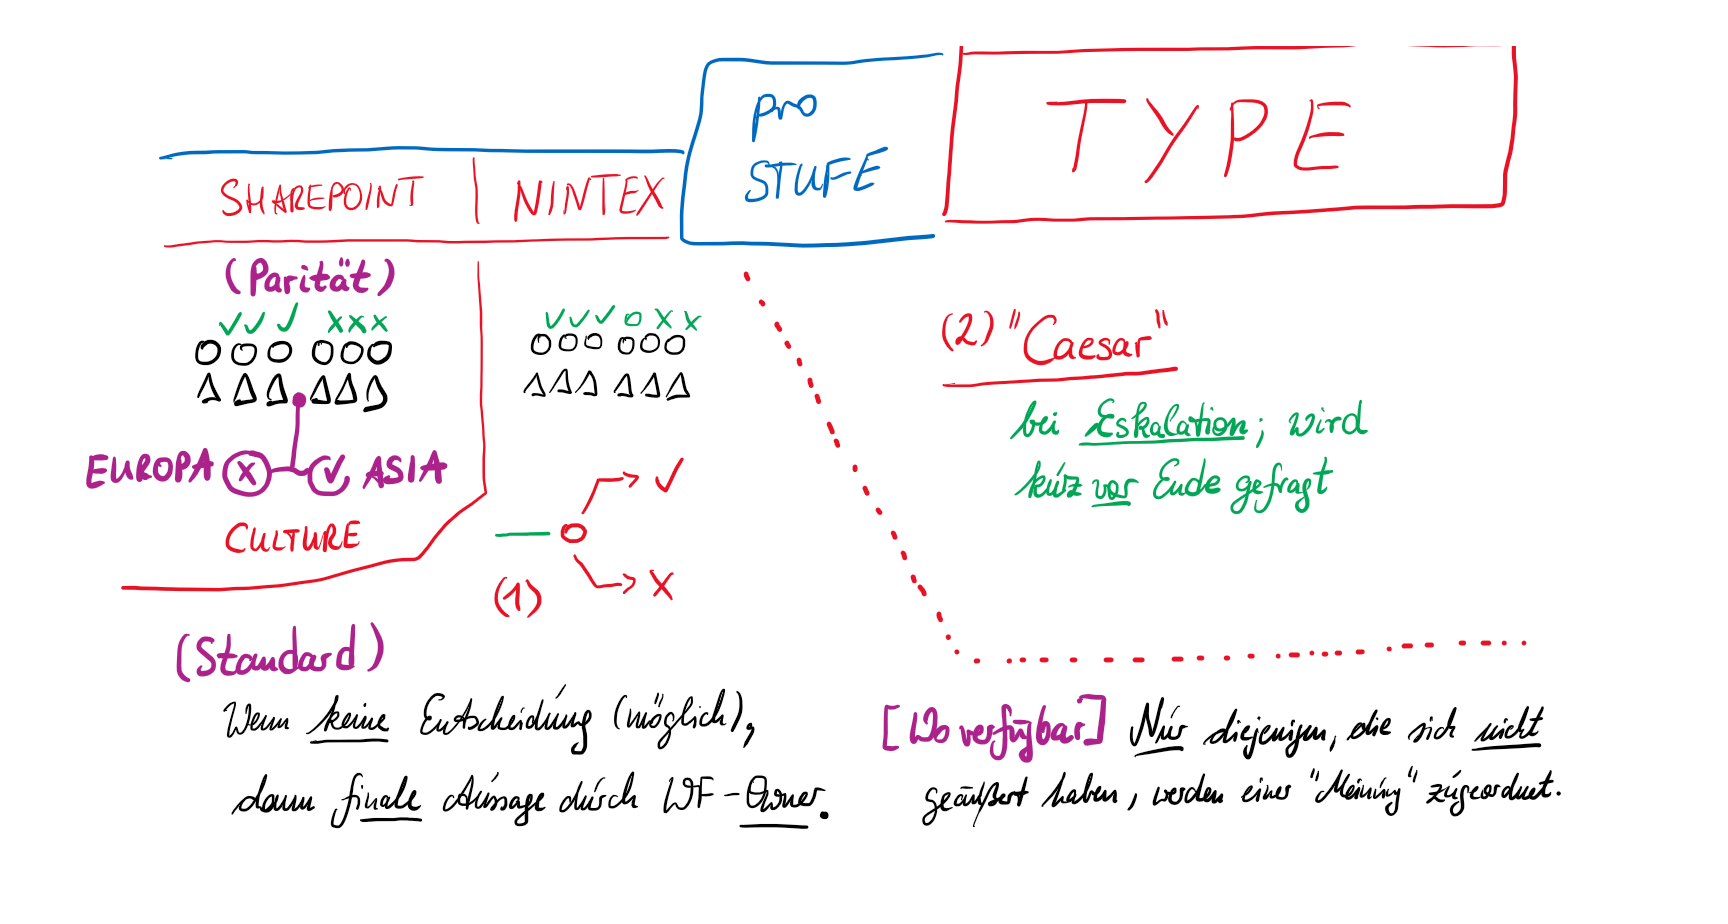 pro
STUFE
TYPE
SHAREPOINT
NINTEX
(Parität)
✓ ✓ ✓ x x x
✓ ✓ ✓ o x x
EUROPA x ✓ ASIA
CULTURE
✓
(1)
x
(2) "Caesar"
bei Eskalation; wird
kurz vor Ende gefragt
(Standard)
Wenn keine Entscheidung (möglich),
dann finale Aussage durch WF-Owner.
[Wo verfügbar] Nur diejenigen, die sich nicht
geäußert haben, werden einer "Meinung" zugeordnet.